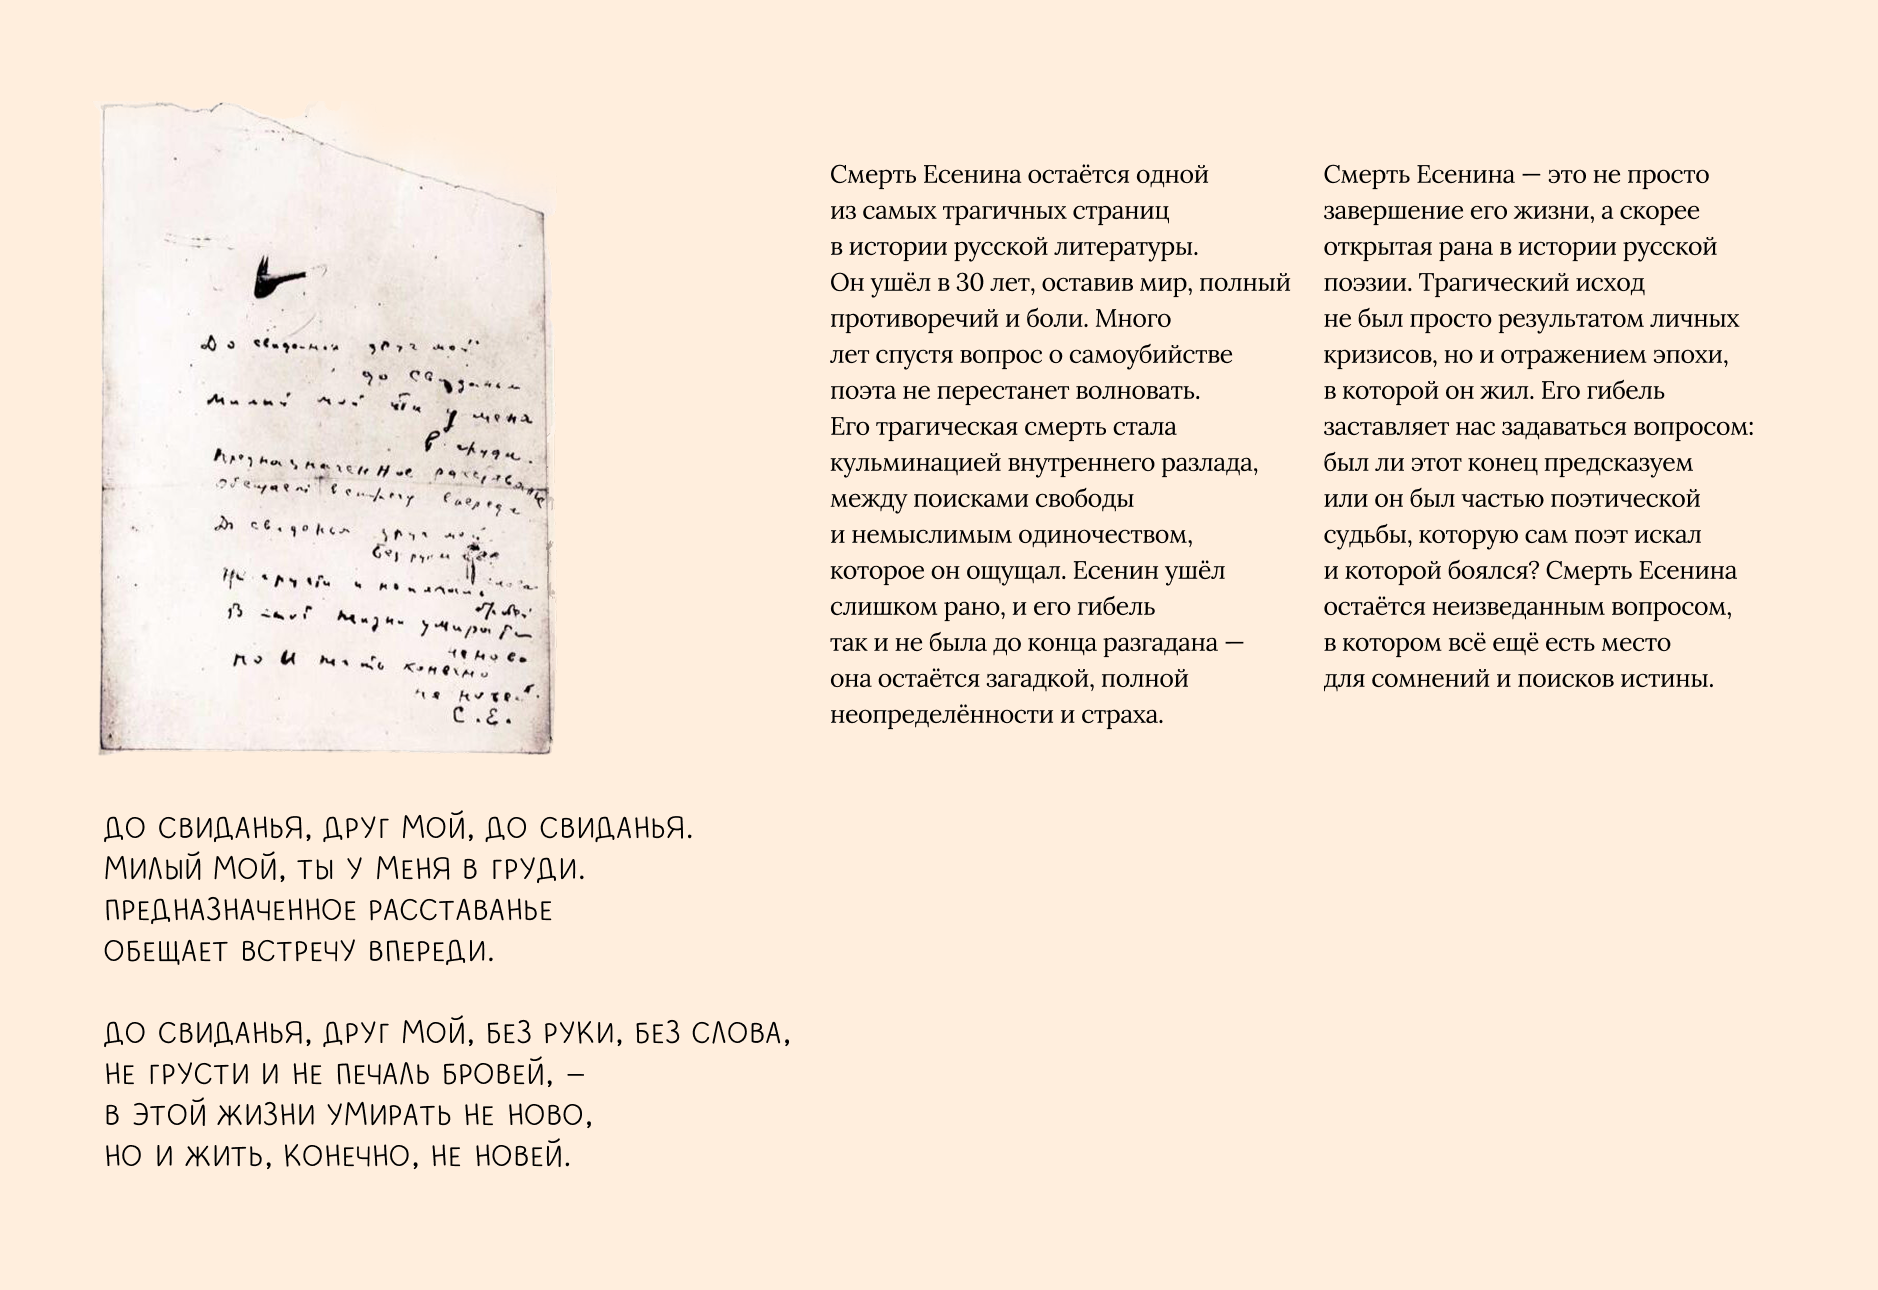 До свиданья друг мой
до свиданья
Милый мой ты у меня
в груди.
Предназначенное расставанье
обещает встречу впереди
До свиданья друг мой
без руки
Не грусти и не печаль
бровей
В этой жизни умирать
не ново
но И жить конечно
не новей.
С.Е.
ДО СВИДАНЬЯ, ДРУГ МОЙ, ДО СВИДАНЬЯ.
МИЛЫЙ МОЙ, ТЫ У МЕНЯ В ГРУДИ.
ПРЕДНАЗНАЧЕННОЕ РАССТАВАНЬЕ
ОБЕЩАЕТ ВСТРЕЧУ ВПЕРЕДИ.
ДО СВИДАНЬЯ, ДРУГ МОЙ, БЕЗ РУКИ, БЕЗ СЛОВА,
НЕ ГРУСТИ И НЕ ПЕЧАЛЬ БРОВЕЙ, –
В ЭТОЙ ЖИЗНИ УМИРАТЬ НЕ НОВО,
НО И ЖИТЬ, КОНЕЧНО, НЕ НОВЕЙ.
Смерть Есенина остаётся одной
из самых трагичных страниц
в истории русской литературы.
Он ушёл в 30 лет, оставив мир, полный
противоречий и боли. Много
лет спустя вопрос о самоубийстве
поэта не перестанет волновать.
Его трагическая смерть стала
кульминацией внутреннего разлада,
между поисками свободы
и немыслимым одиночеством,
которое он ощущал. Есенин ушёл
слишком рано, и его гибель
так и не была до конца разгадана —
она остаётся загадкой, полной
неопределённости и страха.
Смерть Есенина — это не просто
завершение его жизни, а скорее
открытая рана в истории русской
поэзии. Трагический исход
не был просто результатом личных
кризисов, но и отражением эпохи,
в которой он жил. Его гибель
заставляет нас задаваться вопросом:
был ли этот конец предсказуем
или он был частью поэтической
судьбы, которую сам поэт искал
и которой боялся? Смерть Есенина
остаётся неизведанным вопросом,
в котором всё ещё есть место
для сомнений и поисков истины.